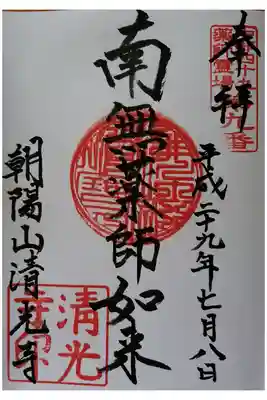 奉拝
平成二十九年七月八日
南無薬師如来
朝陽山清光寺
清光